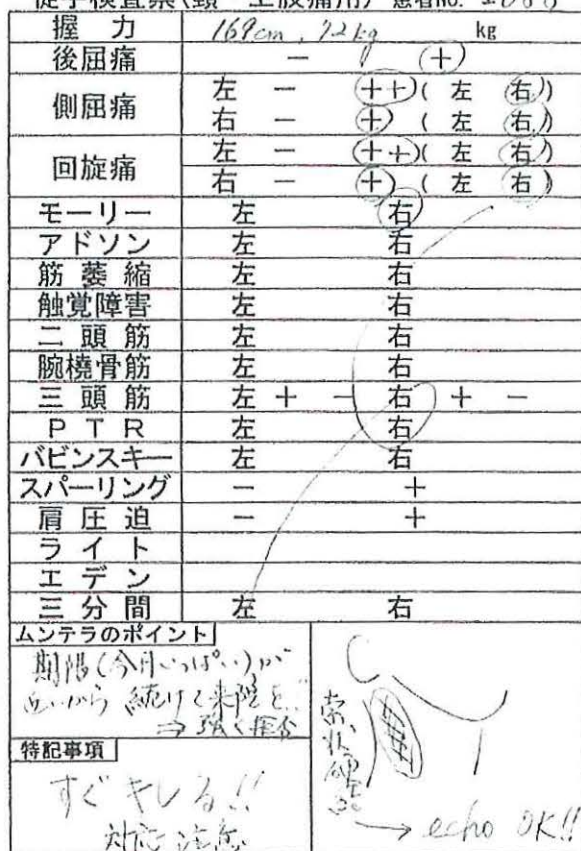 徒手検査票(頸・上肢痛用) 患者No.
握力 169cm, 72kg kg
後屈痛 － (+)
側屈痛 左 － (++)( 左 右)
右 － (+) ( 左 右)
回旋痛 左 － (++)( 左 右)
右 － (+) ( 左 右)
モーリー 左 右
アドソン 左 右
筋萎縮 左 右
触覚障害 左 右
二頭筋 左 右
腕橈骨筋 左 右
三頭筋 左 + － 右 + －
PTR 左 右
バビンスキー 左 右
スパーリング － +
肩圧迫 － +
ライト
エデン
三分間 左 右
ムンテラのポイント
期限(今月いっぱい)が
近いから 続けて来院を
⇒ 強く
特記事項
すぐキレる!!
対応注意
索状硬
→ echo OK!!